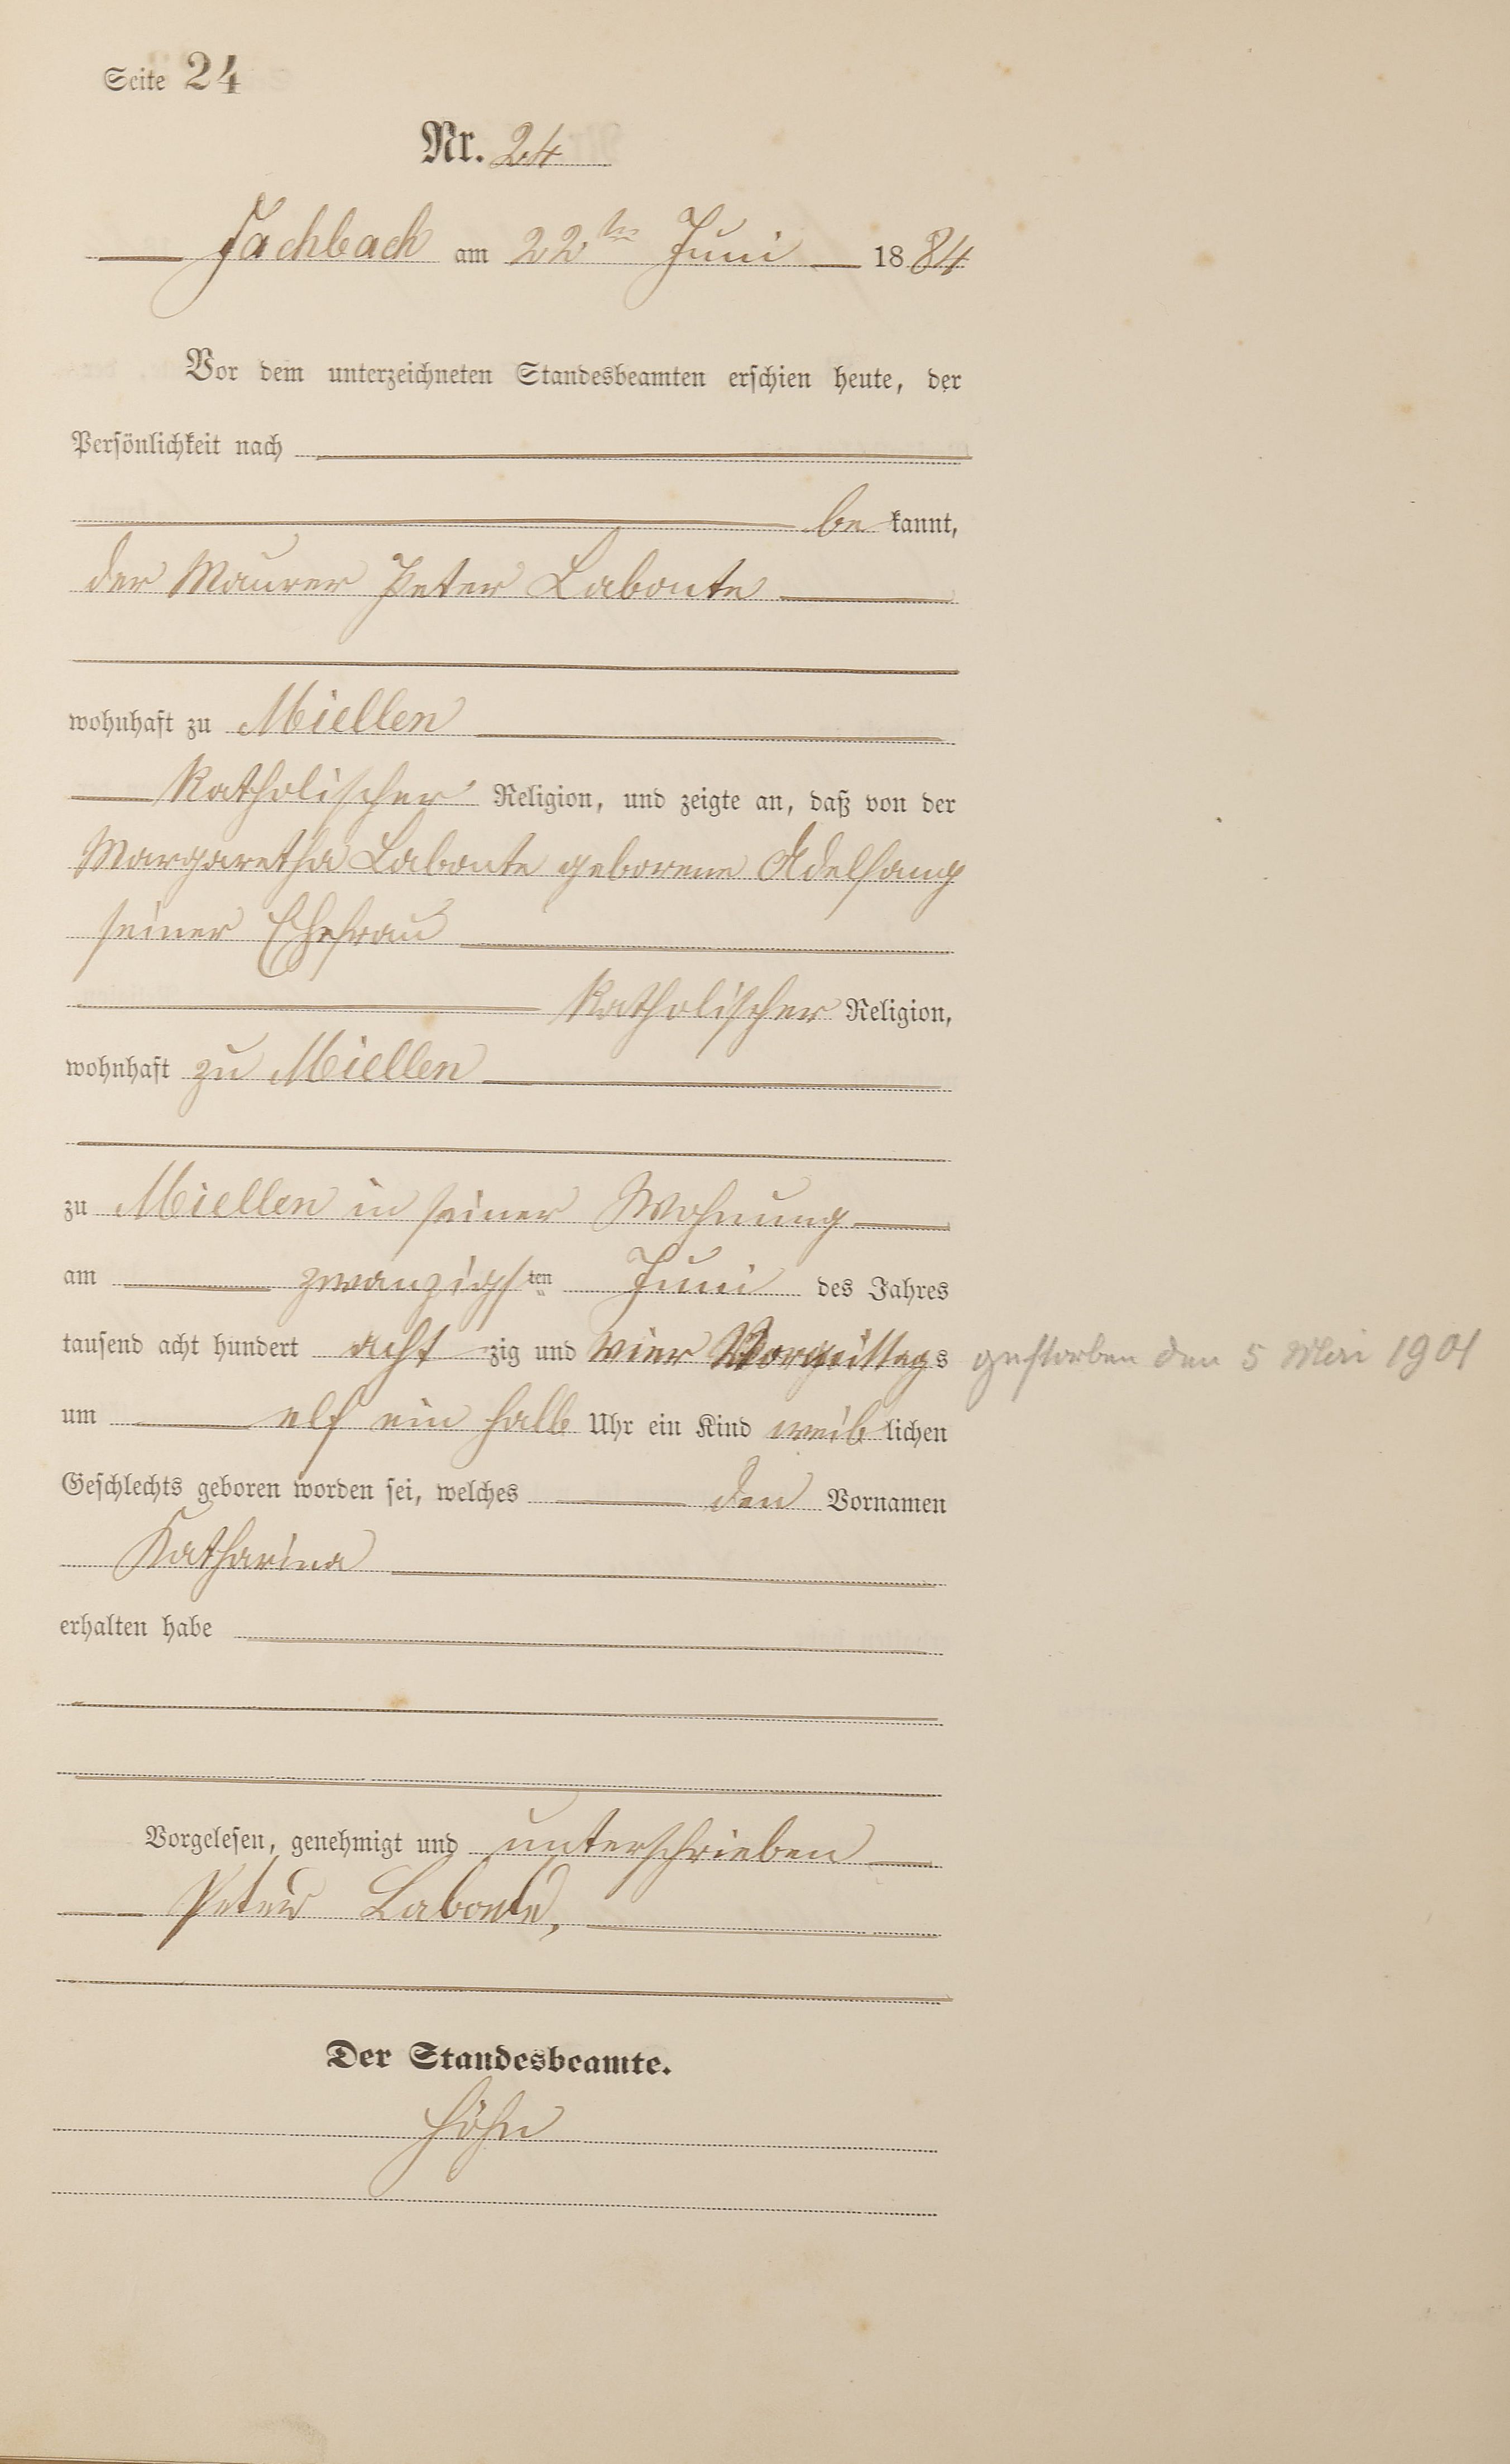 Seite 24
Nr. 24
Fachbach am 22ten Juni 1884
Vor dem unterzeichneten Standesbeamten erschien heute, der
Persönlichkeit nach
be kannt,
der Maurer Peter Labonte
wohnhaft zu Miellen
katholischer Religion, und zeigte an, daß von der
Margaretha Labonte geborene Adelfang
seiner Ehefrau
katholischer Religion,
wohnhaft zu Miellen
zu Miellen in seiner Wohnung
am zwanzigsten Juni des Jahres
tausend acht hundert acht zig und vier Vormittags
gestorben den 5 Mai 1901
um elf ein halb Uhr ein Kind weib lichen
Geschlechts geboren worden sei, welches den Vornamen
Katharina
erhalten habe
Vorgelesen, genehmigt und unterschrieben
Peter Labonte,
Der Standesbeamte.
Höhn